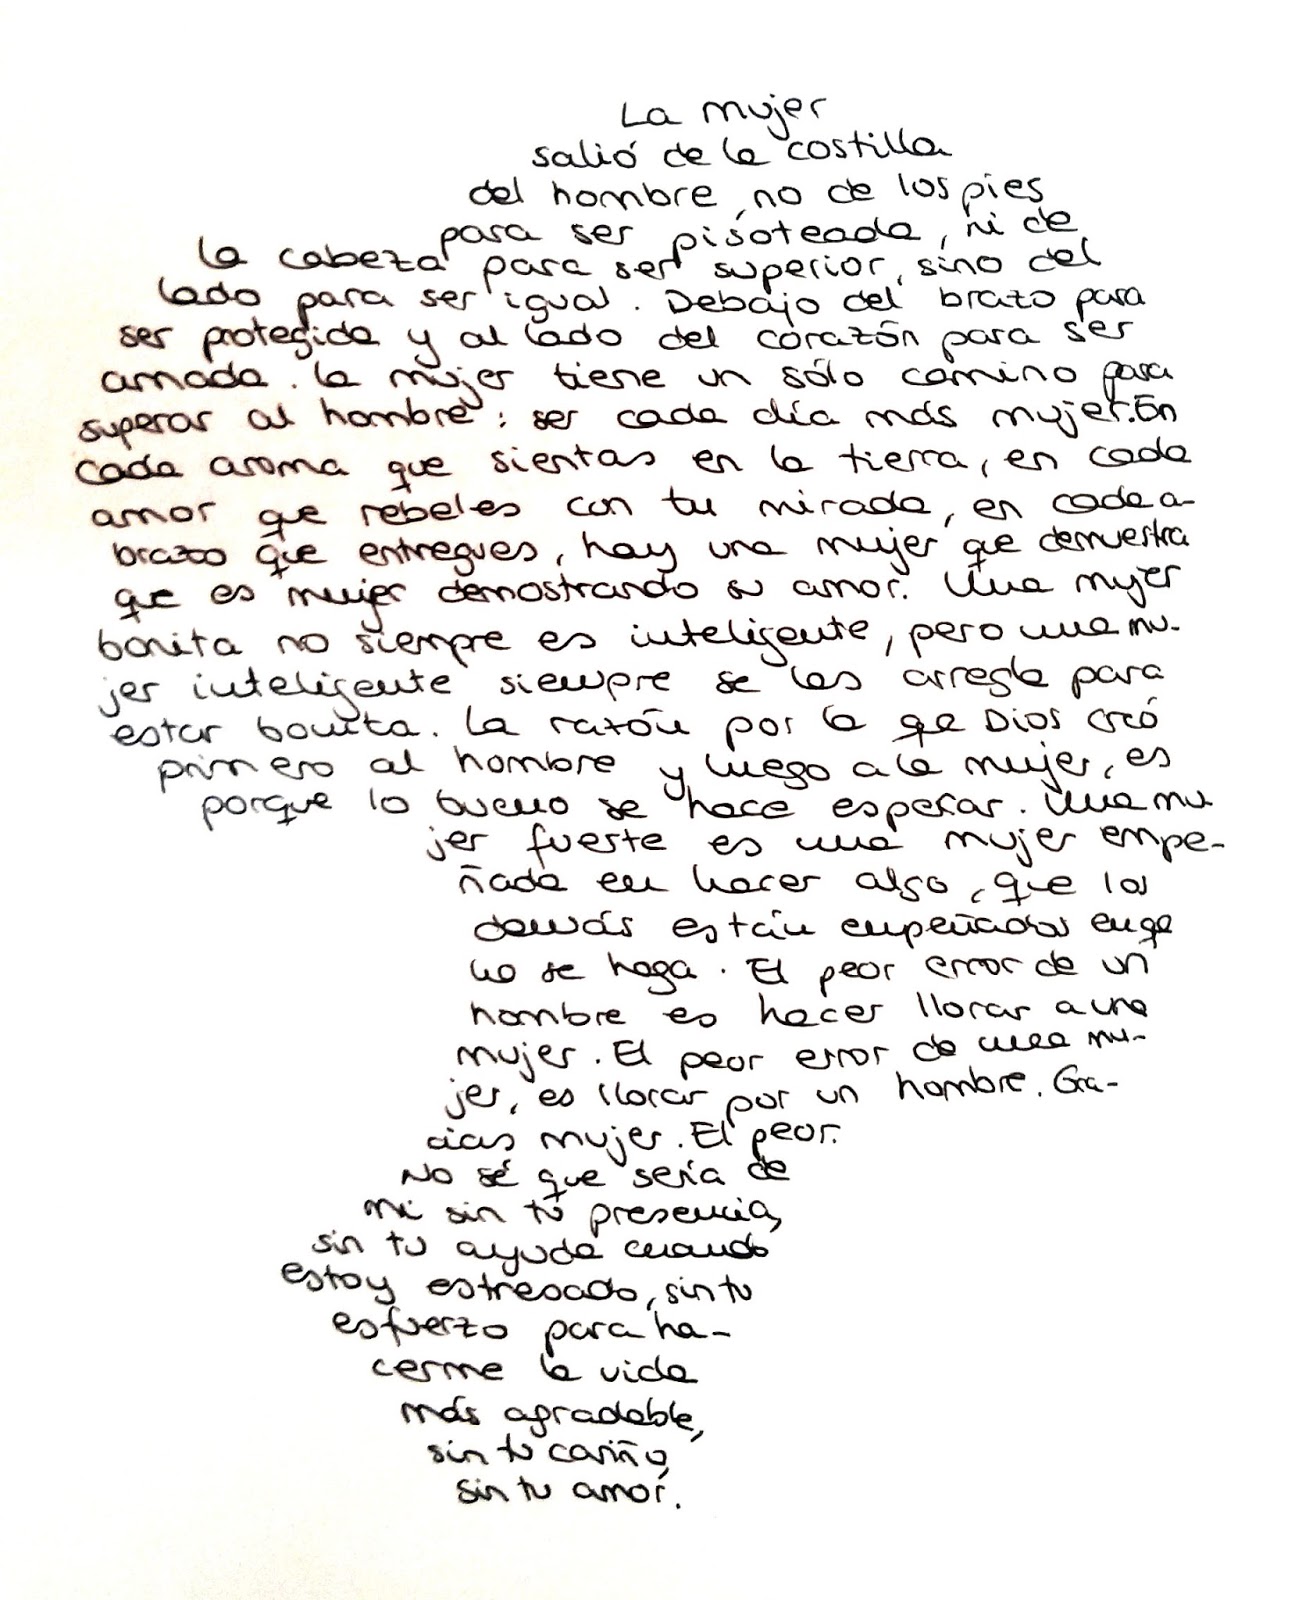 La mujer
salió de la costilla
del hombre, no de los pies
para ser pisoteada, ni de
la cabeza para ser superior, sino del
lado para ser igual. Debajo del brazo para
ser protegida y al lado del corazón para ser
amada. la mujer tiene un sólo camino para
superar al hombre: ser cada día más mujer. En
cada aroma que sientas en la tierra, en cada
amor que rebeles con tu mirada, en cada a-
brazo que entregues, hay una mujer que demuestra
que es mujer demostrando su amor. Una mujer
bonita no siempre es inteligente, pero una mu-
jer inteligente siempre se las arregla para
estar bonita. La razón por la que Dios creó
primero al hombre y luego a la mujer, es
porque lo bueno se hace esperar. Una mu
jer fuerte es una mujer empe-
ñada en hacer algo, que los
demás están empeñados en qe
no se haga. El peor error de un
hombre es hacer llorar a una
mujer. El peor error de una mu-
jer, es llorar por un hombre. Gra-
cias mujer. El peor.
No sé que sería de
mi sin tu presencia,
sin tu ayuda cuando
estoy estresado, sin tu
esfuerzo para ha-
cerme la vida
más agradable,
sin tu cariño,
sin tu amor.